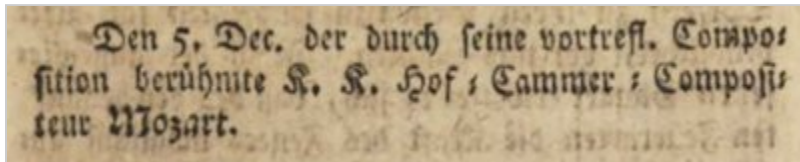 Den 5. Dec. der durch ſeine vortrefl. Compo⸗
ſition berühmte K. K. Hof⸗Cammer⸗Compoſi⸗
teur Mozart.